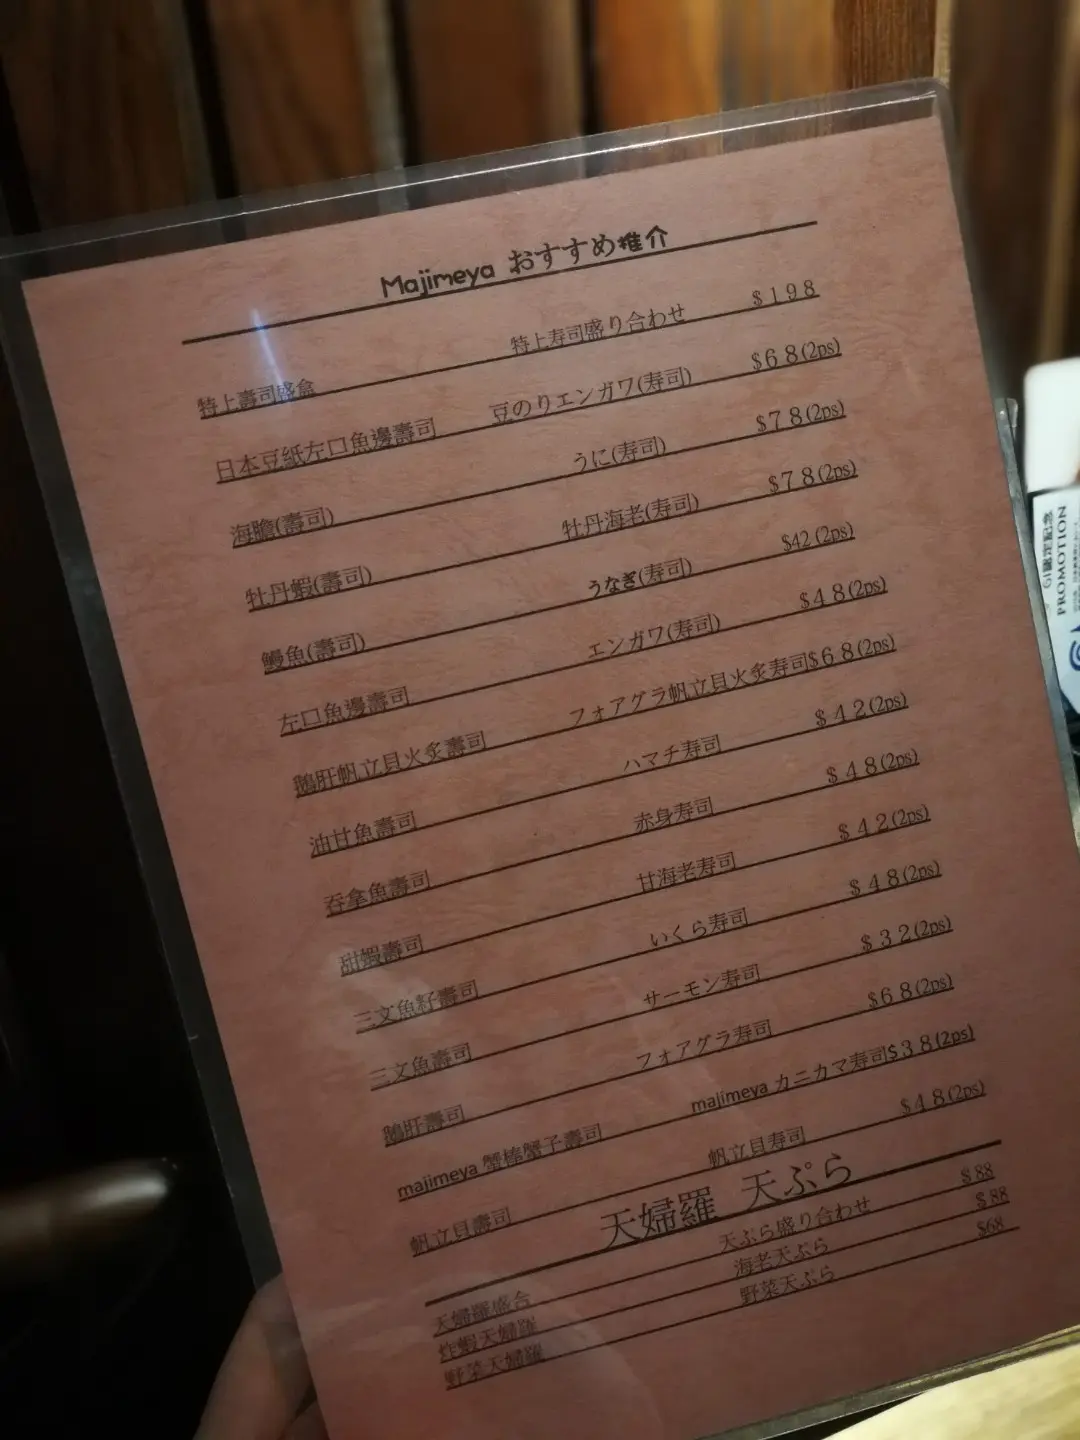 Majimeya おすすめ推介
特上壽司盛盒 特上寿司盛り合わせ $198
日本豆紙左口魚邊壽司 豆のりエンガワ(寿司) $68(2ps)
海膽(壽司) うに(寿司) $78(2ps)
牡丹蝦(壽司) 牡丹海老(寿司) $78(2ps)
鰻魚(壽司) うなぎ(寿司) $42(2ps)
左口魚邊壽司 エンガワ(寿司) $48(2ps)
鵝肝帆立貝火炙壽司 フォアグラ帆立貝火炙寿司$68(2ps)
油甘魚壽司 ハマチ寿司 $42(2ps)
吞拿魚壽司 赤身寿司 $48(2ps)
甜蝦壽司 甘海老寿司 $42(2ps)
三文魚籽壽司 いくら寿司 $48(2ps)
三文魚壽司 サーモン寿司 $32(2ps)
鵝肝壽司 フォアグラ寿司 $68(2ps)
majimeya 蟹棒蟹子壽司 majimeya カニカマ寿司$38(2ps)
帆立貝壽司 帆立貝寿司 $48(2ps)
天婦羅 天ぷら
天婦羅盛合 天ぷら盛り合わせ $88
炸蝦天婦羅 海老天ぷら $88
野菜天婦羅 野菜天ぷら $68
PROMOTION